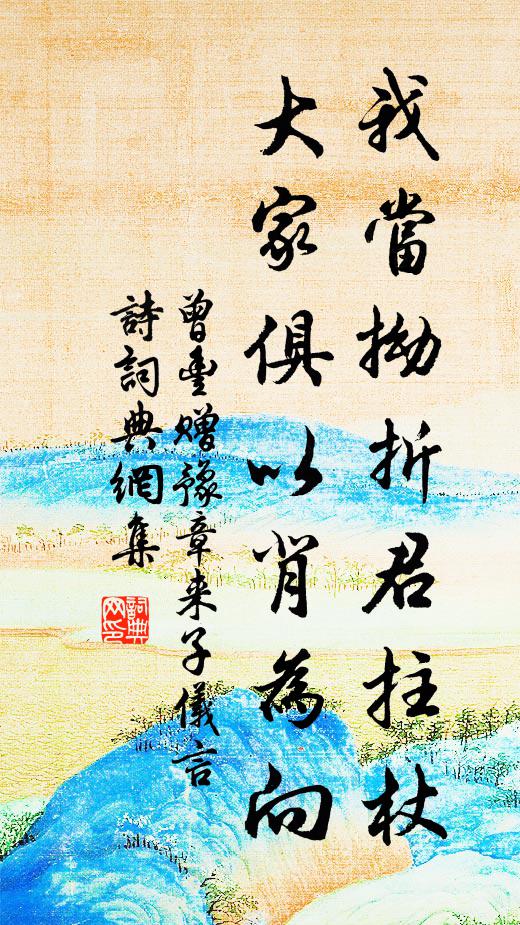 我當拗折君拄杖
大家俱以肯為向
曾豐贈豫章来子儀言
詩詞典網集
詞典网印